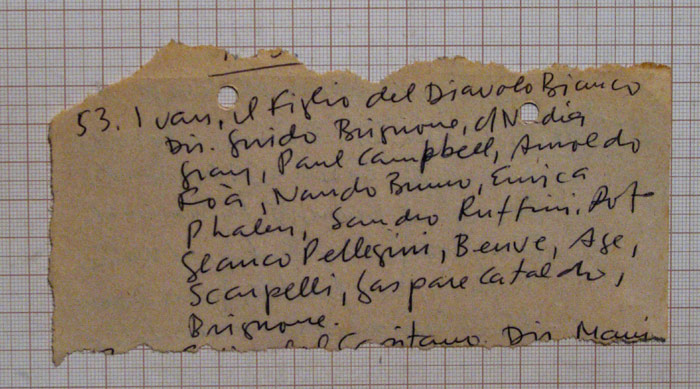 53. Ivan, il figlio del Diavolo Bianco
Dir. Guido Brignone, d N dia
Gray, Paul Campbell, Arnoldo
Foà, Nando Bruno, Enrica
Phalen, Sandro Ruffini. Pot
Glanco Pellegrini, Benve, Age,
Scarpelli, Gaspare Cataldo,
Brignone.
del Capitano. Dir. Mari